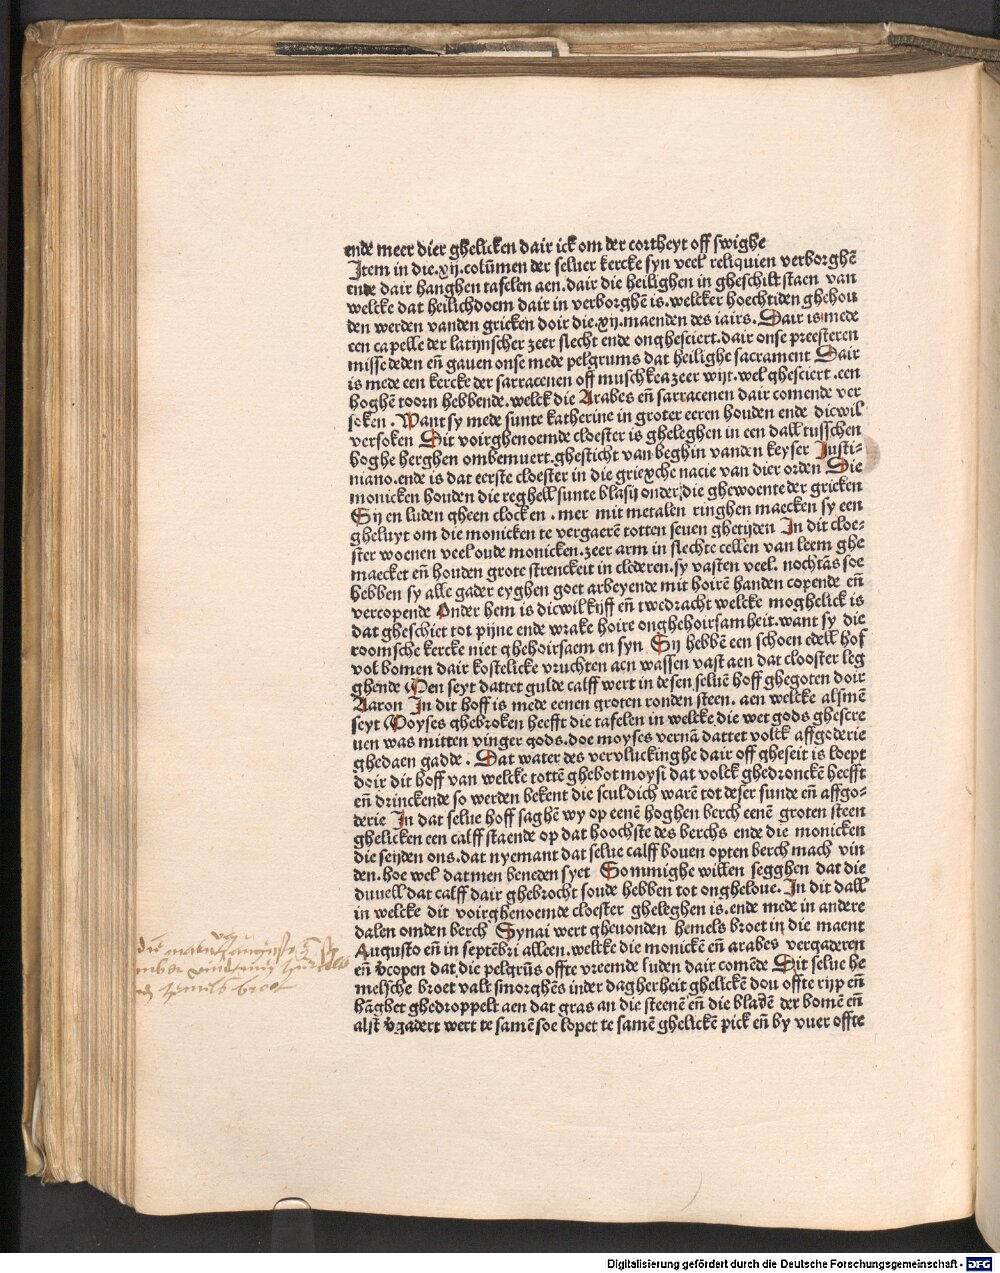 ende meer dier ghelicken dair ick om der cortheyt off swighe
Item in die.xij.colūmen der seluer kercke syn veel reliquien verborghē
ende dair hanghen tafelen aen.dair die heilighen in gheschilt staen van
welcke dat heilichdoem dair in verborghē is.welcker hoechtiden ghehou
den werden vanden gricken doir die.xij.maenden des iairs. Dair is mede
een capelle der latijnscher zeer slecht ende onghesciert.dair onse preesteren
misse deden eñ gauen onse mede pelgrums dat heilighe sacrament Dair
is mede een kercke der sarracenen off muschkea zeer wijt.wel ghesciert.een
hoghē toorn hebbende.welck die Arabes eñ sarracenen dair comende ver
soken. Want sy mede sunte katherine in groter eeren houden ende dicwil
versoken Dit voirghenoemde cloester is gheleghen in een dall tusschen
hoghe berghen ombemuert.ghesticht van beghin vanden keyser Iusti-
niano.ende is dat eerste cloester in die griexche nacie van dier orden Die
monicken houden die reghell sunte blasij onder die ghewoente der gricken
Sij en luden gheen clocken. mer mit metalen ringhen maecken sy een
gheluyt om die monicken te vergaerē totten seuen ghetijden In dit cloe-
ster woenen veel oude monicken.zeer arm in slechte cellen van leem ghe
maecket eñ houden grote strenckeit in clederen.sy vasten veel. nochtās soe
hebben sy alle gader eyghen goet arbeyende mit hoirē handen copende eñ
vercopende Onder hem is dicwil kijff eñ twedracht welcke moghelick is
dat gheschiet tot pijne ende wrake hoire onghehoirsamheit.want sy die
roomsche kercke niet ghehoirsaem en syn Sij hebbē een schoen edell hof
vol bomen dair kostelicke vruchten aen wassen vast aen dat clooster leg
ghende Men seyt dattet gulde calff wert in desen seluē hoff ghegoten doir
Aaron In dit hoff is mede eenen groten ronden steen. aen welcke alsmē
seyt Moyses ghebroken heefft die tafelen in welcke die wet gods ghescre
uen was mitten vinger gods.doe moyses vernā dattet volck affgoderie
ghedaen gadde. Dat water des vervluckinghe dair off gheseit is loept
doir dit hoff van welcke tottē ghebot moysi dat volck ghedronckē heefft
eñ drinckende so werden bekent die sculdich warē tot deser sunde eñ affgo-
derie In dat selue hoff saghē wy op eenē hoghen berch eenē groten steen
ghelicken een calff staende op dat hoochste des berchs ende die monicken
die seyden ons.dat nyemant dat selue calff bouen opten berch mach vin
den.hoe wel datmen beneden syet Sommighe willen segghen dat die
duuell dat calff dair ghebrocht soude hebben tot ongheloue. In dit dall
in welcke dit voirghenoemde cloester gheleghen is.ende mede in andere
dalen omden berch Synai wert gheuonden hemels broet in die maent
Augusto eñ in septēbri alleen.weltke die monickē eñ arabes vergaderen
eñ v̓copen dat die pelgrūs offte vreemde luden dair comēde Dit selue he
melsche broet valt smorghēs inder dagherheit ghelickē dou offte rijp eñ
hāghet ghedroppelt aen dat gras an die steenē eñ die bladē der bomē eñ
alst v̓gadert wert te samē soe lopet te samē ghelickē pick eñ by vuer offte
hemels broet
Digitalisierung gefördert durch die Deutsche Forschungsgemeinschaft - DFG